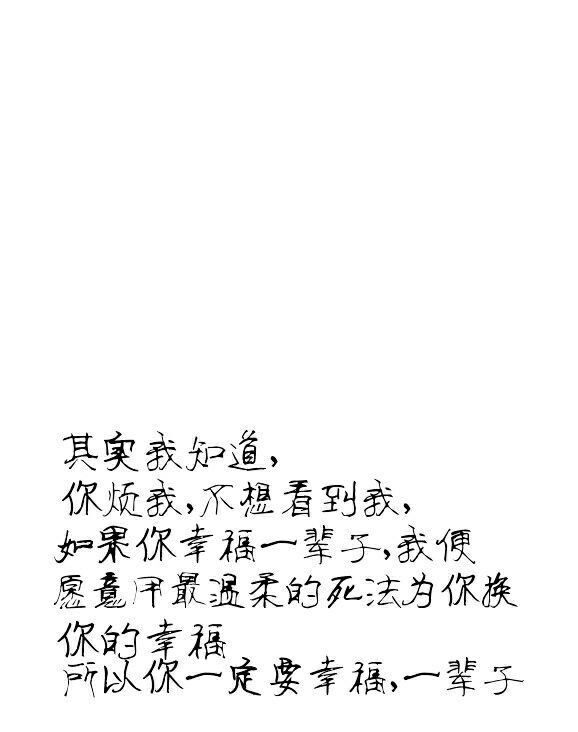 其实我知道,
你烦我,不想看到我,
如果你幸福一辈子,我便
愿意用最温柔的死法为你换
你的幸福
所以你一定要幸福,一辈子